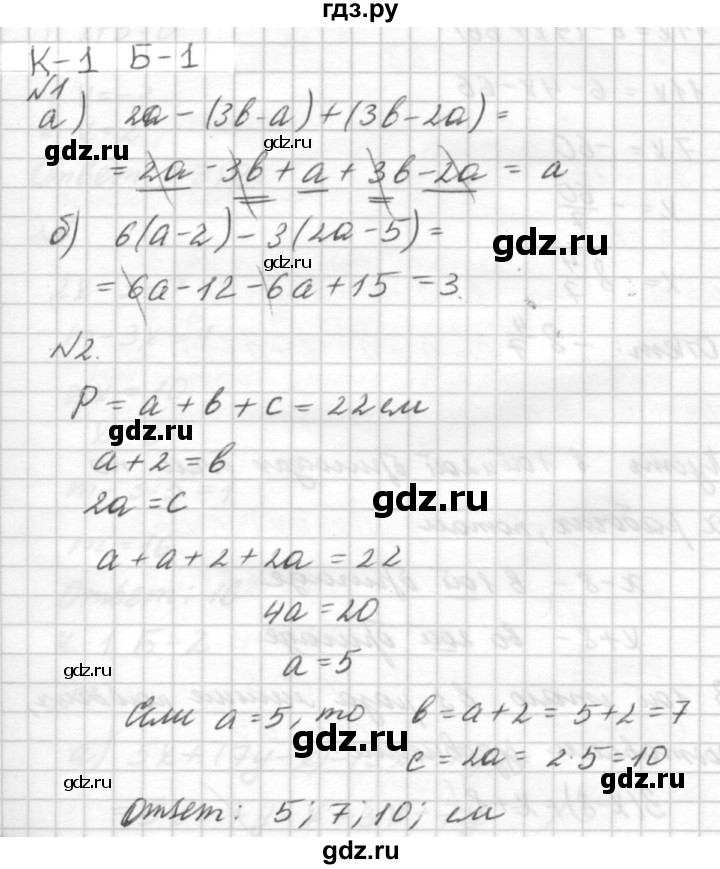 гдз.ру
К-1 Б-1
№1
а) 2a - (3b - a) + (3b - 2a) =
gdz.ru
= 2a - 3b + a + 3b - 2a = a
б) 6(a - 2) - 3(2a - 5) =
gdz.ru
gdz.ru
= 6a - 12 - 6a + 15 = 3.
№2.
P = a + b + c = 22 см
gdz.ru
a + 2 = b
2a = c
gdz.ru
a + a + 2 + 2a = 22
4a = 20
a = 5
gdz.ru
Если a = 5, то b = a + 2 = 5 + 2 = 7
gdz.ru
c = 2a = 2·5 = 10
gdz.ru
Ответ: 5; 7; 10; см
gdz.ru